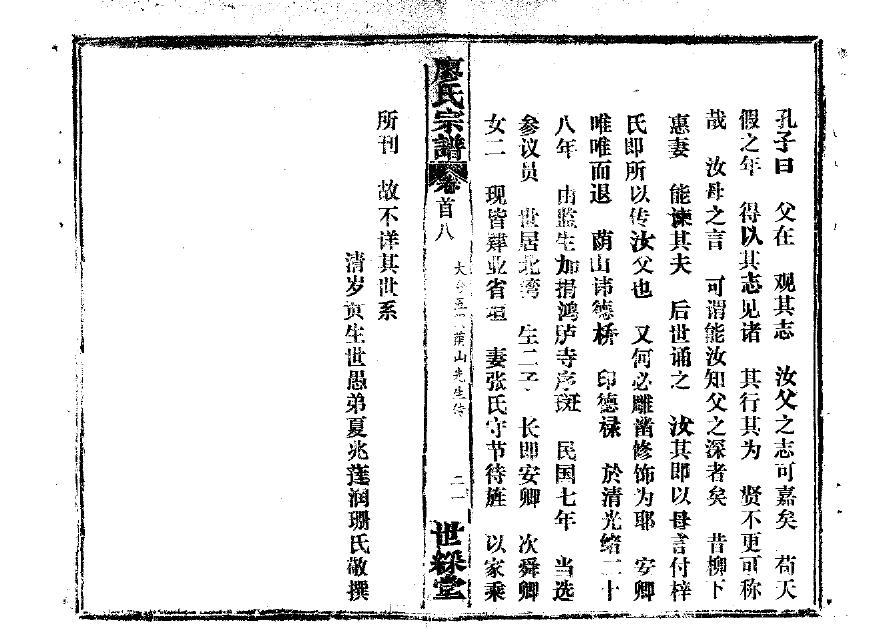 孔子曰 父在 观其志 汝父之志可嘉矣 苟天
假之年 得以其志见诸 其行其为 贤不更可称
哉 汝母之言 可谓能汝知父之深者矣 昔柳下
惠妻 能谏其夫 后世诵之 汝其即以母言付梓
氏即所以传汝父也 又何必雕凿修饰为耶 安卿
唯唯而退 荫山讳德桥 印德禄 於清光绪二十
八年 由监生加捐鸿胪寺序班 民国七年 当选
参议员 世居北湾 生二子 长即安卿 次舜卿
女二 现皆肄业省垣 妻张氏守节待旌 以家乘
廖氏宗譜 卷首八
荫山先生传
二一
世綵堂
所刊 故不详其世系
清岁贡生世愚弟夏兆莲润珊氏敬撰